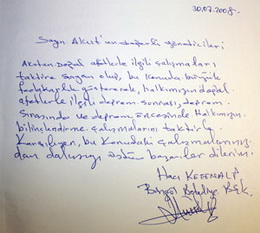 30.07.2008.
Sayın Akut'un değerli yöneticileri
Akutan Doğal afetlerle ilgili çalışmaları
taktire şayan olup, bu konuda büyük
fedakarlık göstererek, Halkımızın doğal
afetlerle ilgili deprem sonrası, deprem
sırasında ve deprem öncesinde Halkımızın
bilinçlendirme çalışmalarını taktirle
karşılıyor, bu konudaki çalışmalarınız
dan dolayı üstün başarılar dilerim.
Hacı KETENALP
Bingöl Belediye Bşk.